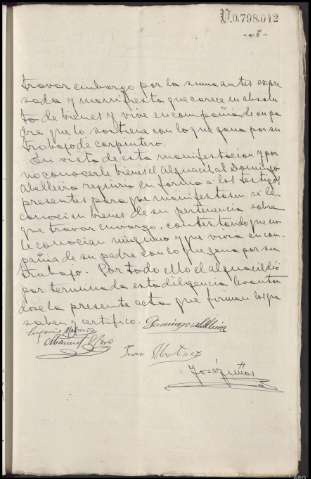 V.0.798.042
travar embargo por la suma antes expre
sada y manifiesta que carece en absolu
to de bienes y vive en compañia de su pa
dre que lo sostiene con lo que gana por su
trabajo de carpintero.
En vista de esta manifestacion y por
no conocerle bienes el Alguacil Domingo
Abelleira requiere en forma a los testigos
presentes para que manifiesten si le
conocen bienes de su pertenencia sobre
que travar embargo, contestando que no
le conocian ninguno y que vivia en com
pañia de su padre con lo que gana por su
trabajo. Por todo ello el alguacil dió
por terminada esta diligencia levantan
dose la presente acta que firman los que
saben y certifico. Domingo Abelleira
Manuel
José